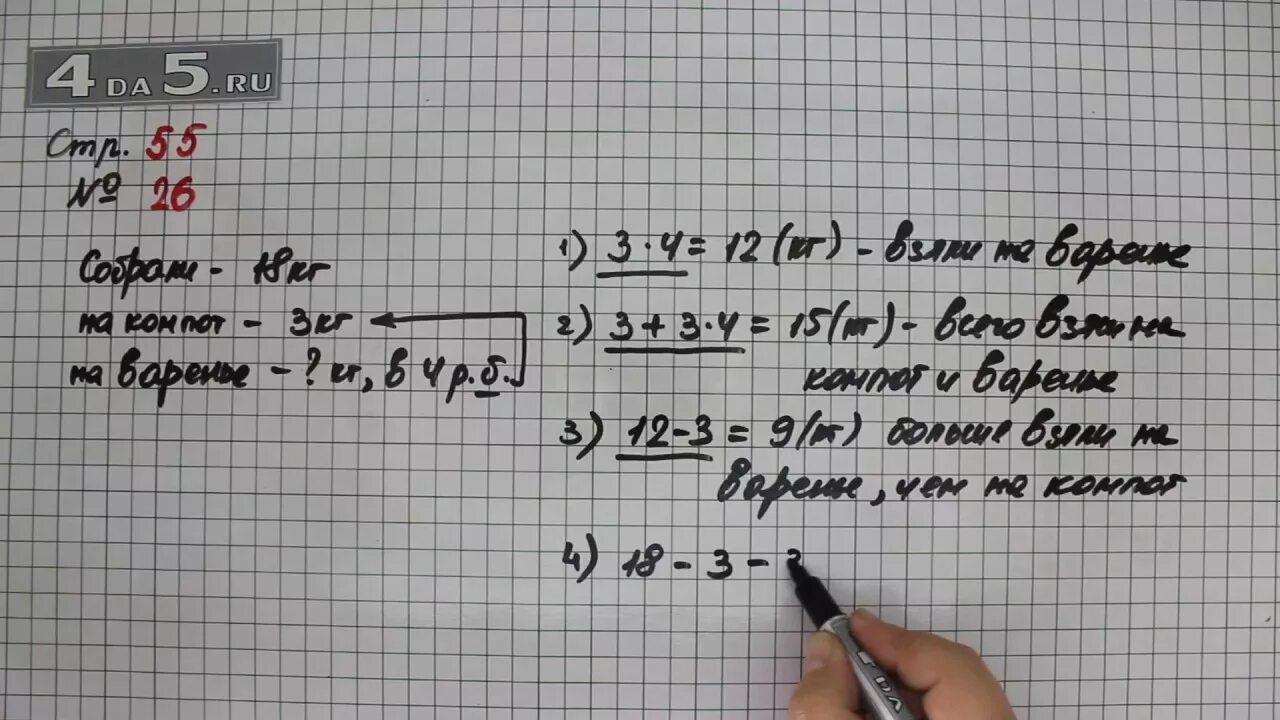 4DA5.RU
Стр. 55
№ 26
Собрали - 18кг
на компот - 3кг
на варенье - ? кг, в 4 р. б.
1) 3 · 4 = 12 (кг) - взяли на варенье
2) 3 + 3 · 4 = 15 (кг) - всего взяли на
компот и варенье
3) 12 - 3 = 9 (кг) больше взяли на
варенье, чем на компот
4) 18 - 3 -